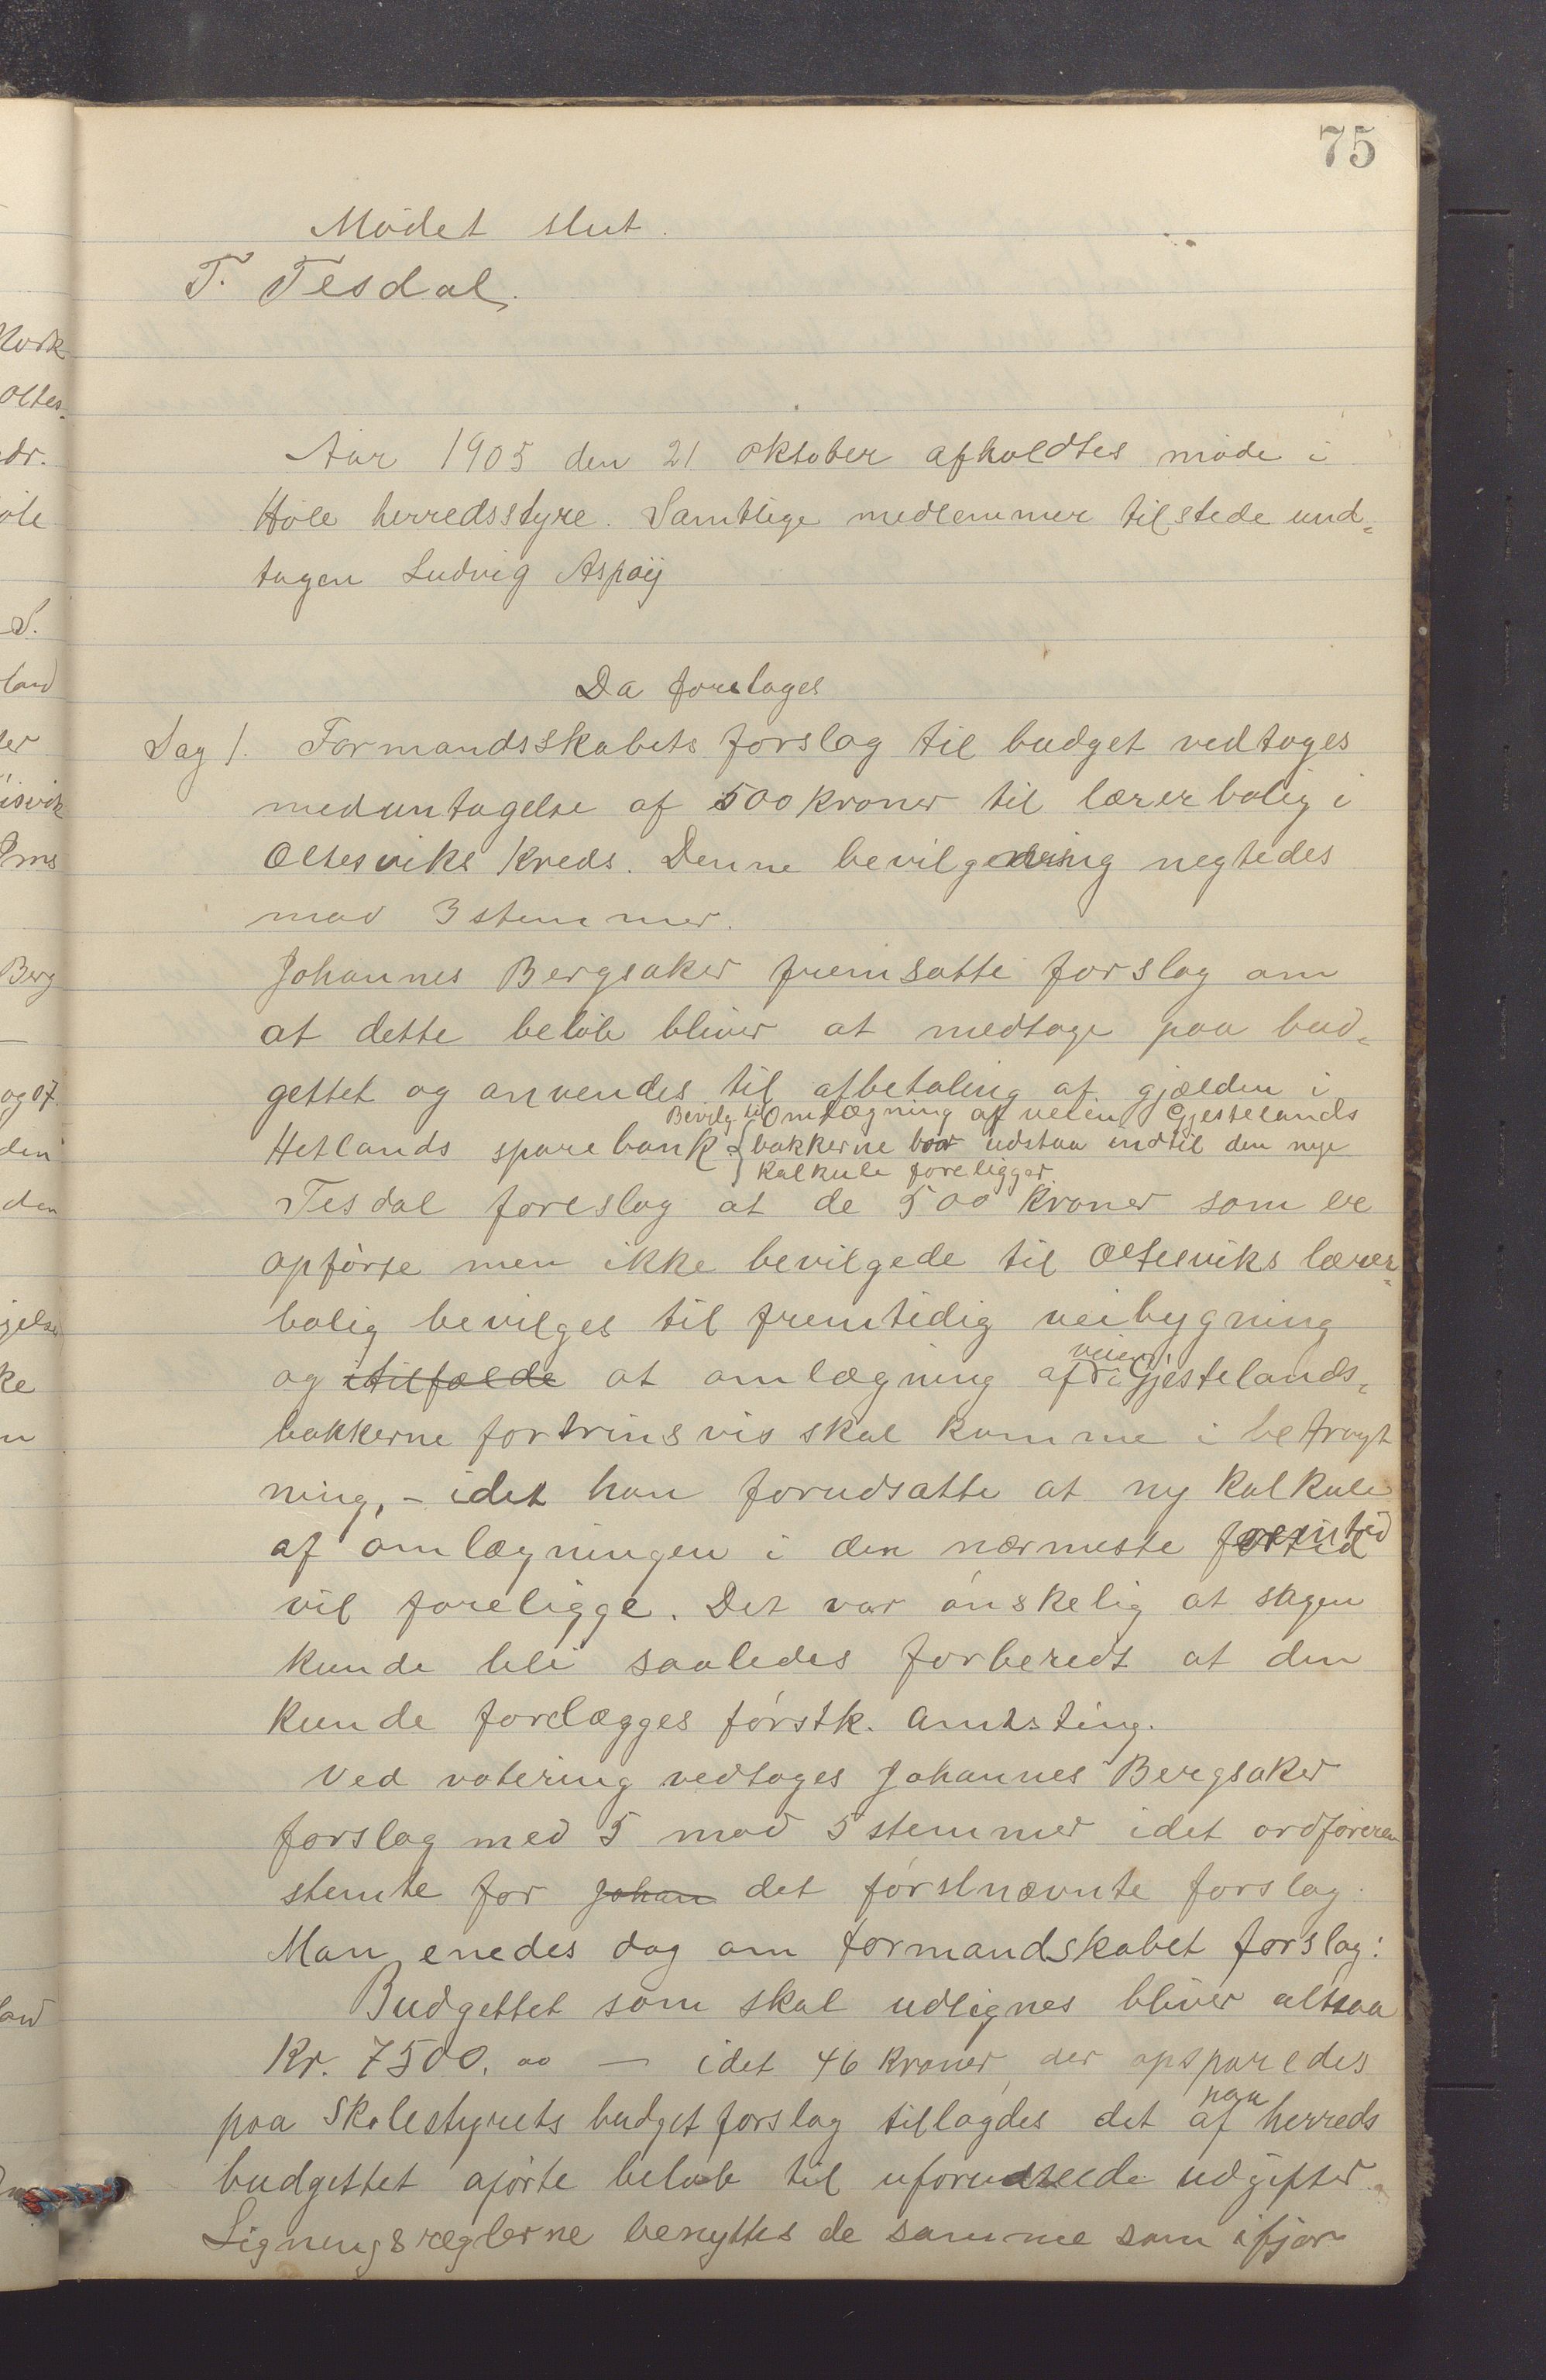 75
Mødet slut.
T. Tesdal.
Aar 1905 den 21 oktober afholdtes møde i
Høle herredsstyre. Samtlige medlemmer tilstede und-
tagen Ludvig Aspøy
Da foretoges
Sag 1. Formandsskabets forslag til budget vedtoges
meduntagelse af 500 kroner til lærerbolig i
Oltesviks kreds. Denne bevilgning negtedes
mod 3 stemmer.
Johannes Bergsaker fremsatte forslag om
at dette beløb bliver at medtage paa bud-
gettet og anvendes til afbetaling af gjælden i
Bevilg. til Omlægning af veien i Gjestelands
Hetlands sparebank. { bakkerne bør udstaa indtil den nye
kalkule foreligger.
Tesdal foreslog at de 500 kroner som er
opførte men ikke bevilgede til Oltesviks lærer-
bolig bevilges til fremtidig veibygning
og itilfælde at omlægning af veien i Gjestelands-
bakkerne fortrinsvis skal komme i betragt
ning, - idet han forudsatte at ny kalkule
af omlægningen i den nærmeste fremtid
vil foreligge. Det var ønskelig at sagen
kunde bli saaledes forberedt at den
kunde forelægges førstk. amtsting.
Ved votering vedtoges Johannes Bergsaker
forslag med 5 mod 5 stemmer idet ordføreren
stemte for Johan det førstnævnte forslag.
Man enedes dog om formandskabet forslag:
Budgettet som skal udlignes bliver altsaa
Kr. 7500.00 — idet 46 kroner, der opsparedes
paa Skolestyrets budgetforslag tillagdes det af paa herreds
budgettet aførte beløb til uforudseede udgifter.
Ligningsreglerne benyttes de samme som ifjor